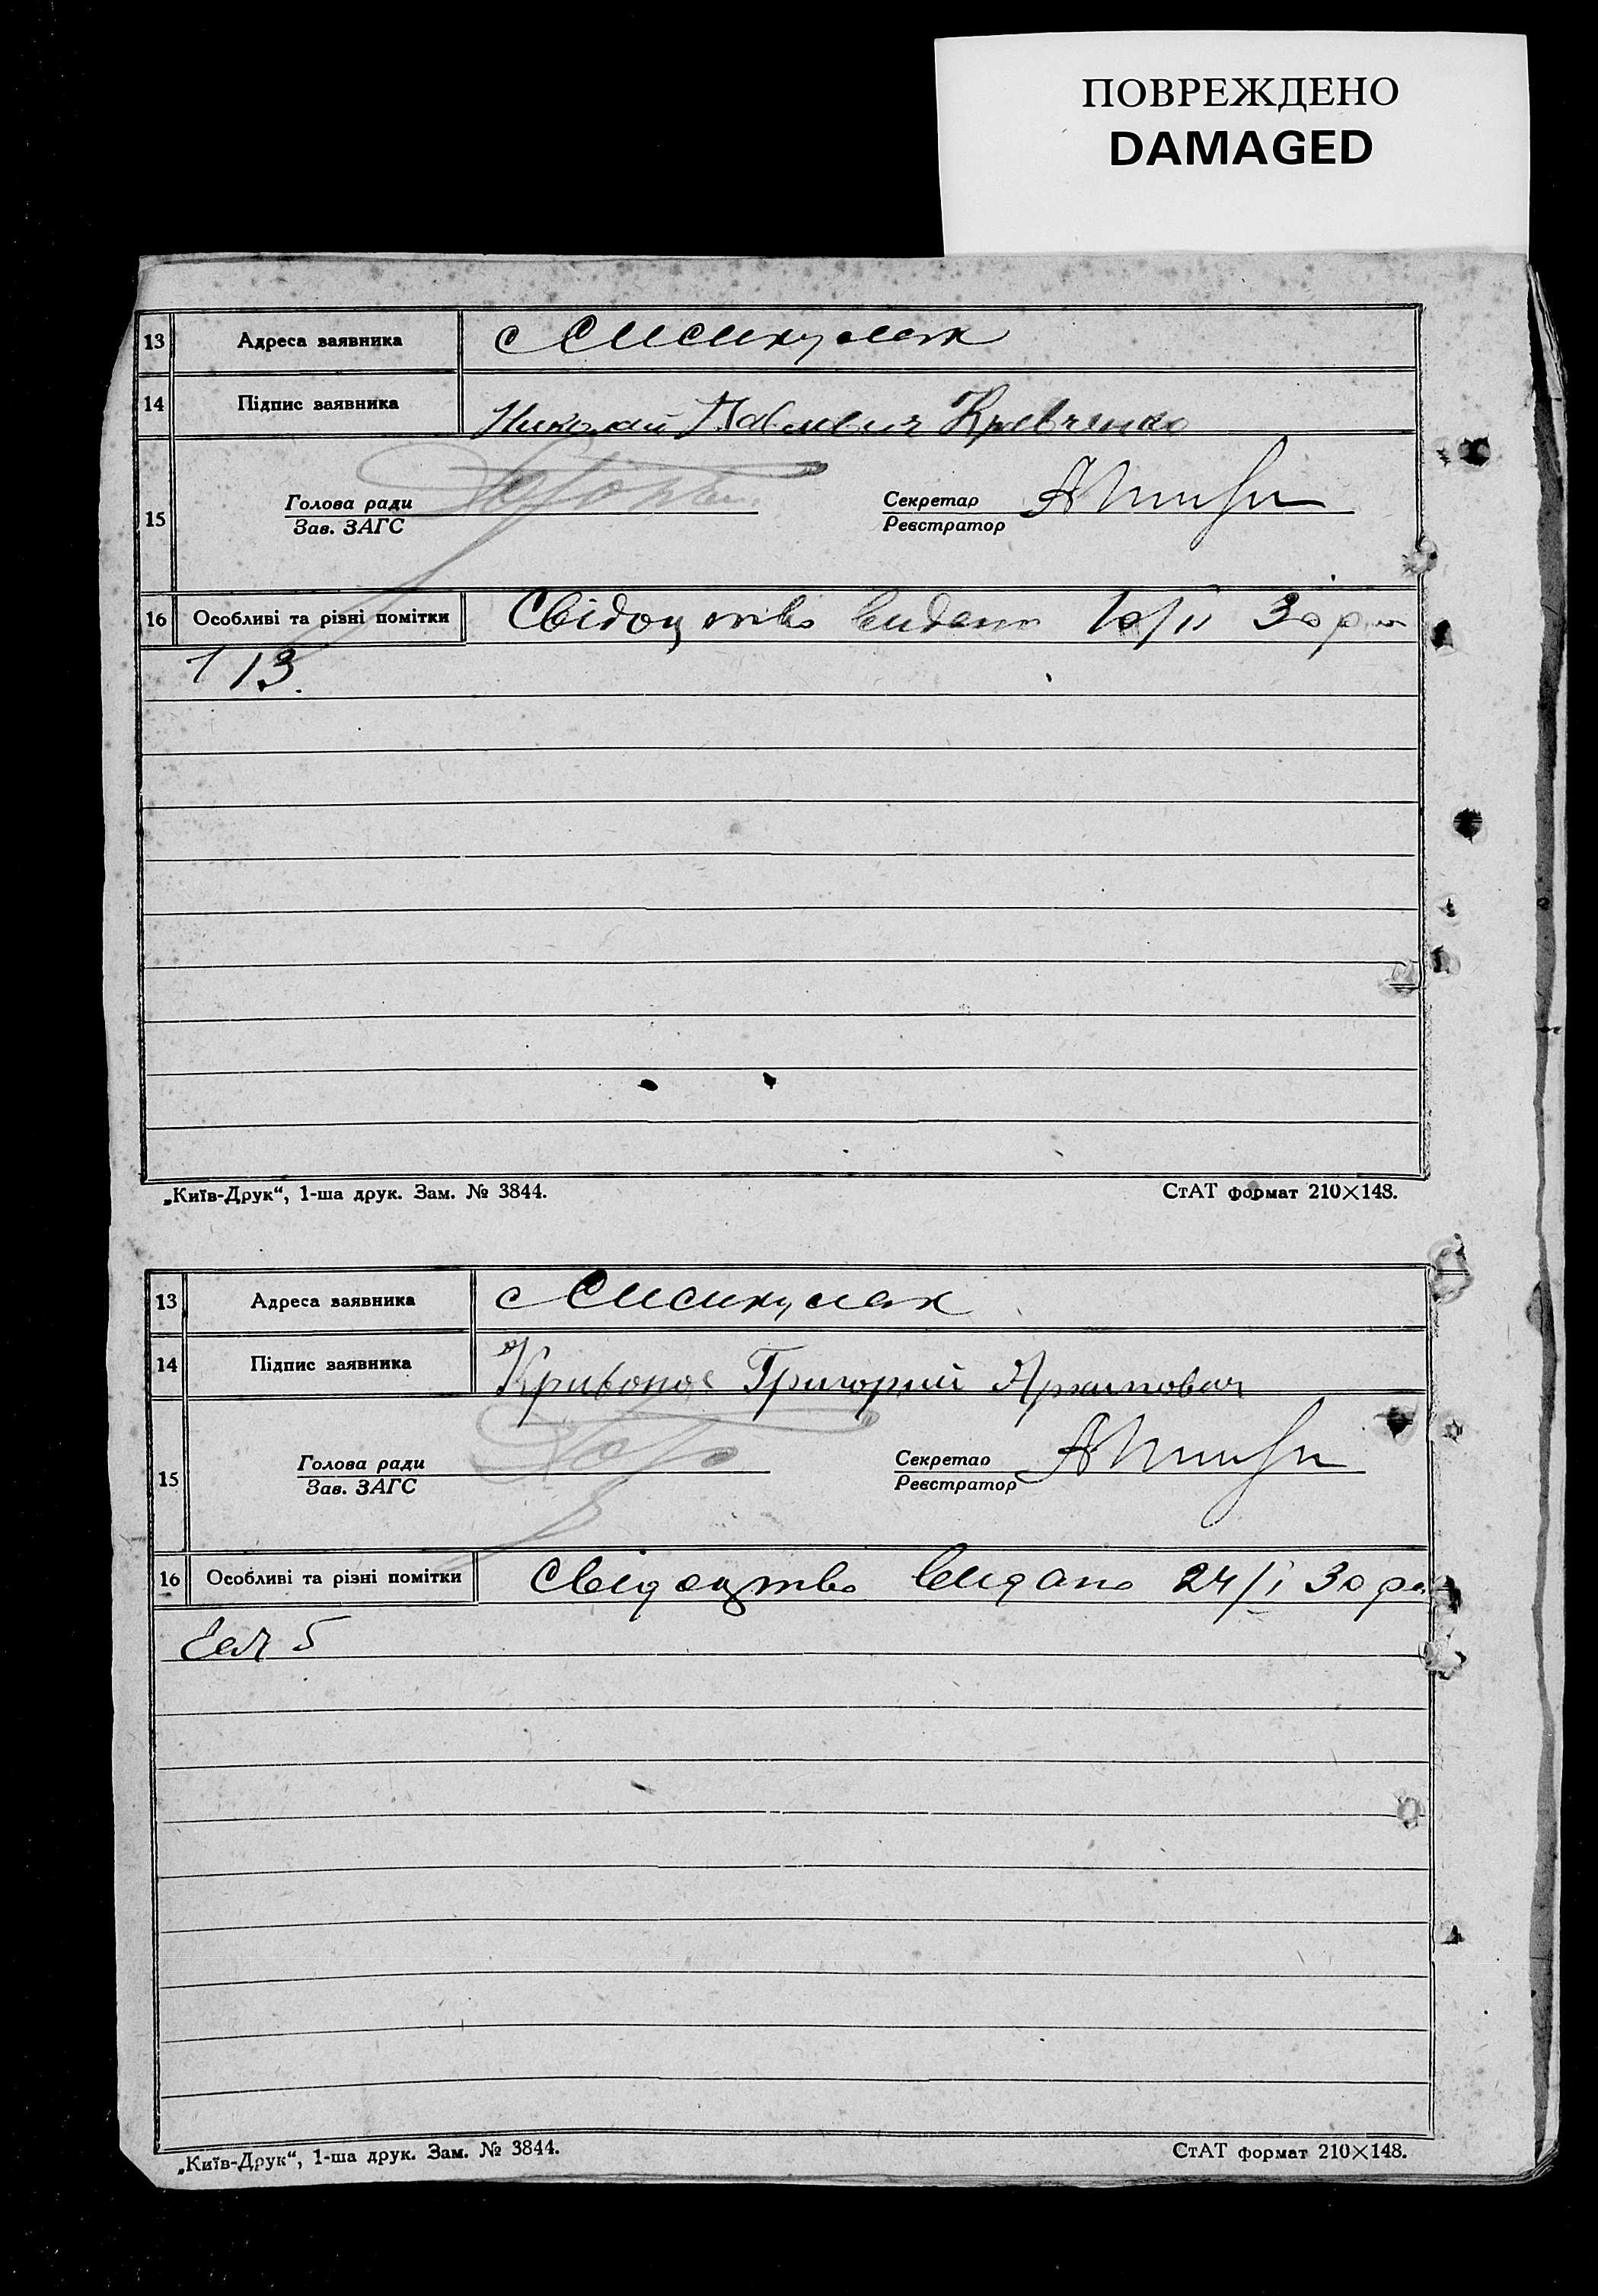 ПОВРЕЖДЕНО
DAMAGED
13 Адреса заявника с
14 Підпис заявника Николай Павлович Кравченко
Голова ради Секретар
15
Зав. ЗАГС Реєстратор
16 Особливі та різні помітки Свідоцтво видано 10/II 30 р
13
„Київ-Друк“, 1-ша друк. Зам. № 3844. СтАТ формат 210×148.
13 Адреса заявника с
14 Підпис заявника Кривонос Григорий Архипович
Голова ради Секретар
15
Зав. ЗАГС Реєстратор
16 Особливі та різні помітки Свідоцтво видано 24/I 30 р
5
„Київ-Друк“, 1-ша друк. Зам. № 3844. СтАТ формат 210×148.